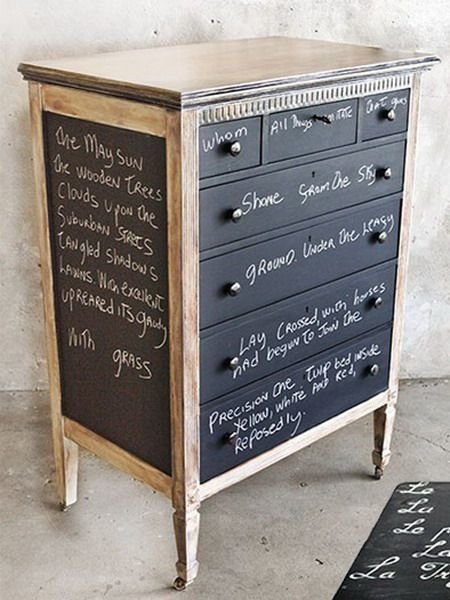 The May Sun
The Wooden Trees
Clouds Upon the
Suburban Streets
Tangled Shadows
Lawns. With excellent
upreared its gawdy
With grass
Whom
All Things imitate
that gives
Shone from the Sky
Ground. Under the leafy
Lay Crossed, with horses
had begun to Join the
Precision the Tulip bed inside
Yellow, white and Red,
reposedly.
Le
La
Le
La
La Tr